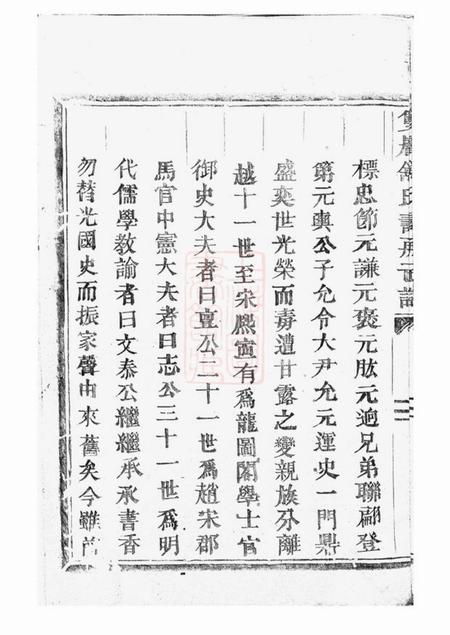 標忠節元謙元褒元肱元逈兄弟聯翩登
第元輿公子允令大尹允元運史一門鼎
盛奕世光榮而毒遭甘露之變親族分離
越十一世至宋熙寧有爲龍圖閣學士官
御史大夫者曰亶公二十一世爲趙宋郡
馬官中憲大夫者曰志公三十一世爲明
代儒學敎諭者曰文泰公繼繼承承書香
勿替光國史而振家聲由來舊矣今雖